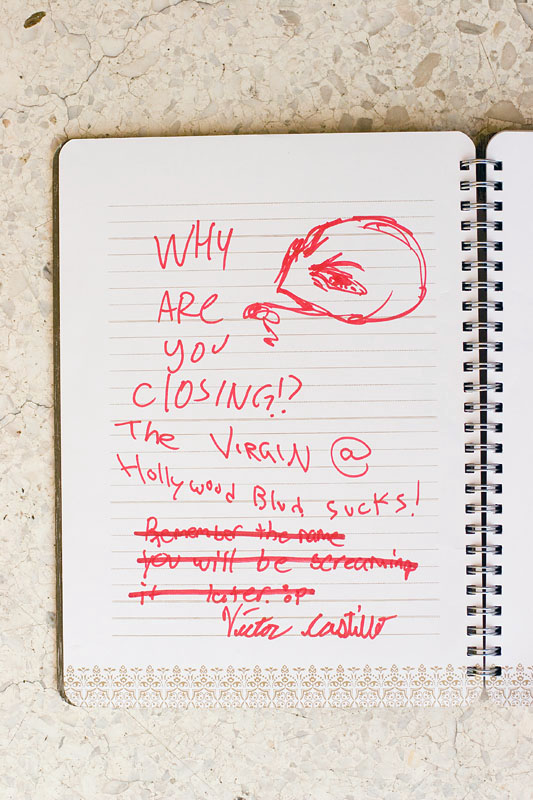 WHY
ARE
YOU
CLOSING!?
The VIRGIN @
Hollywood Blvd sucks!
Remember the name
you will be screaming
it later :p
Victor Castillo